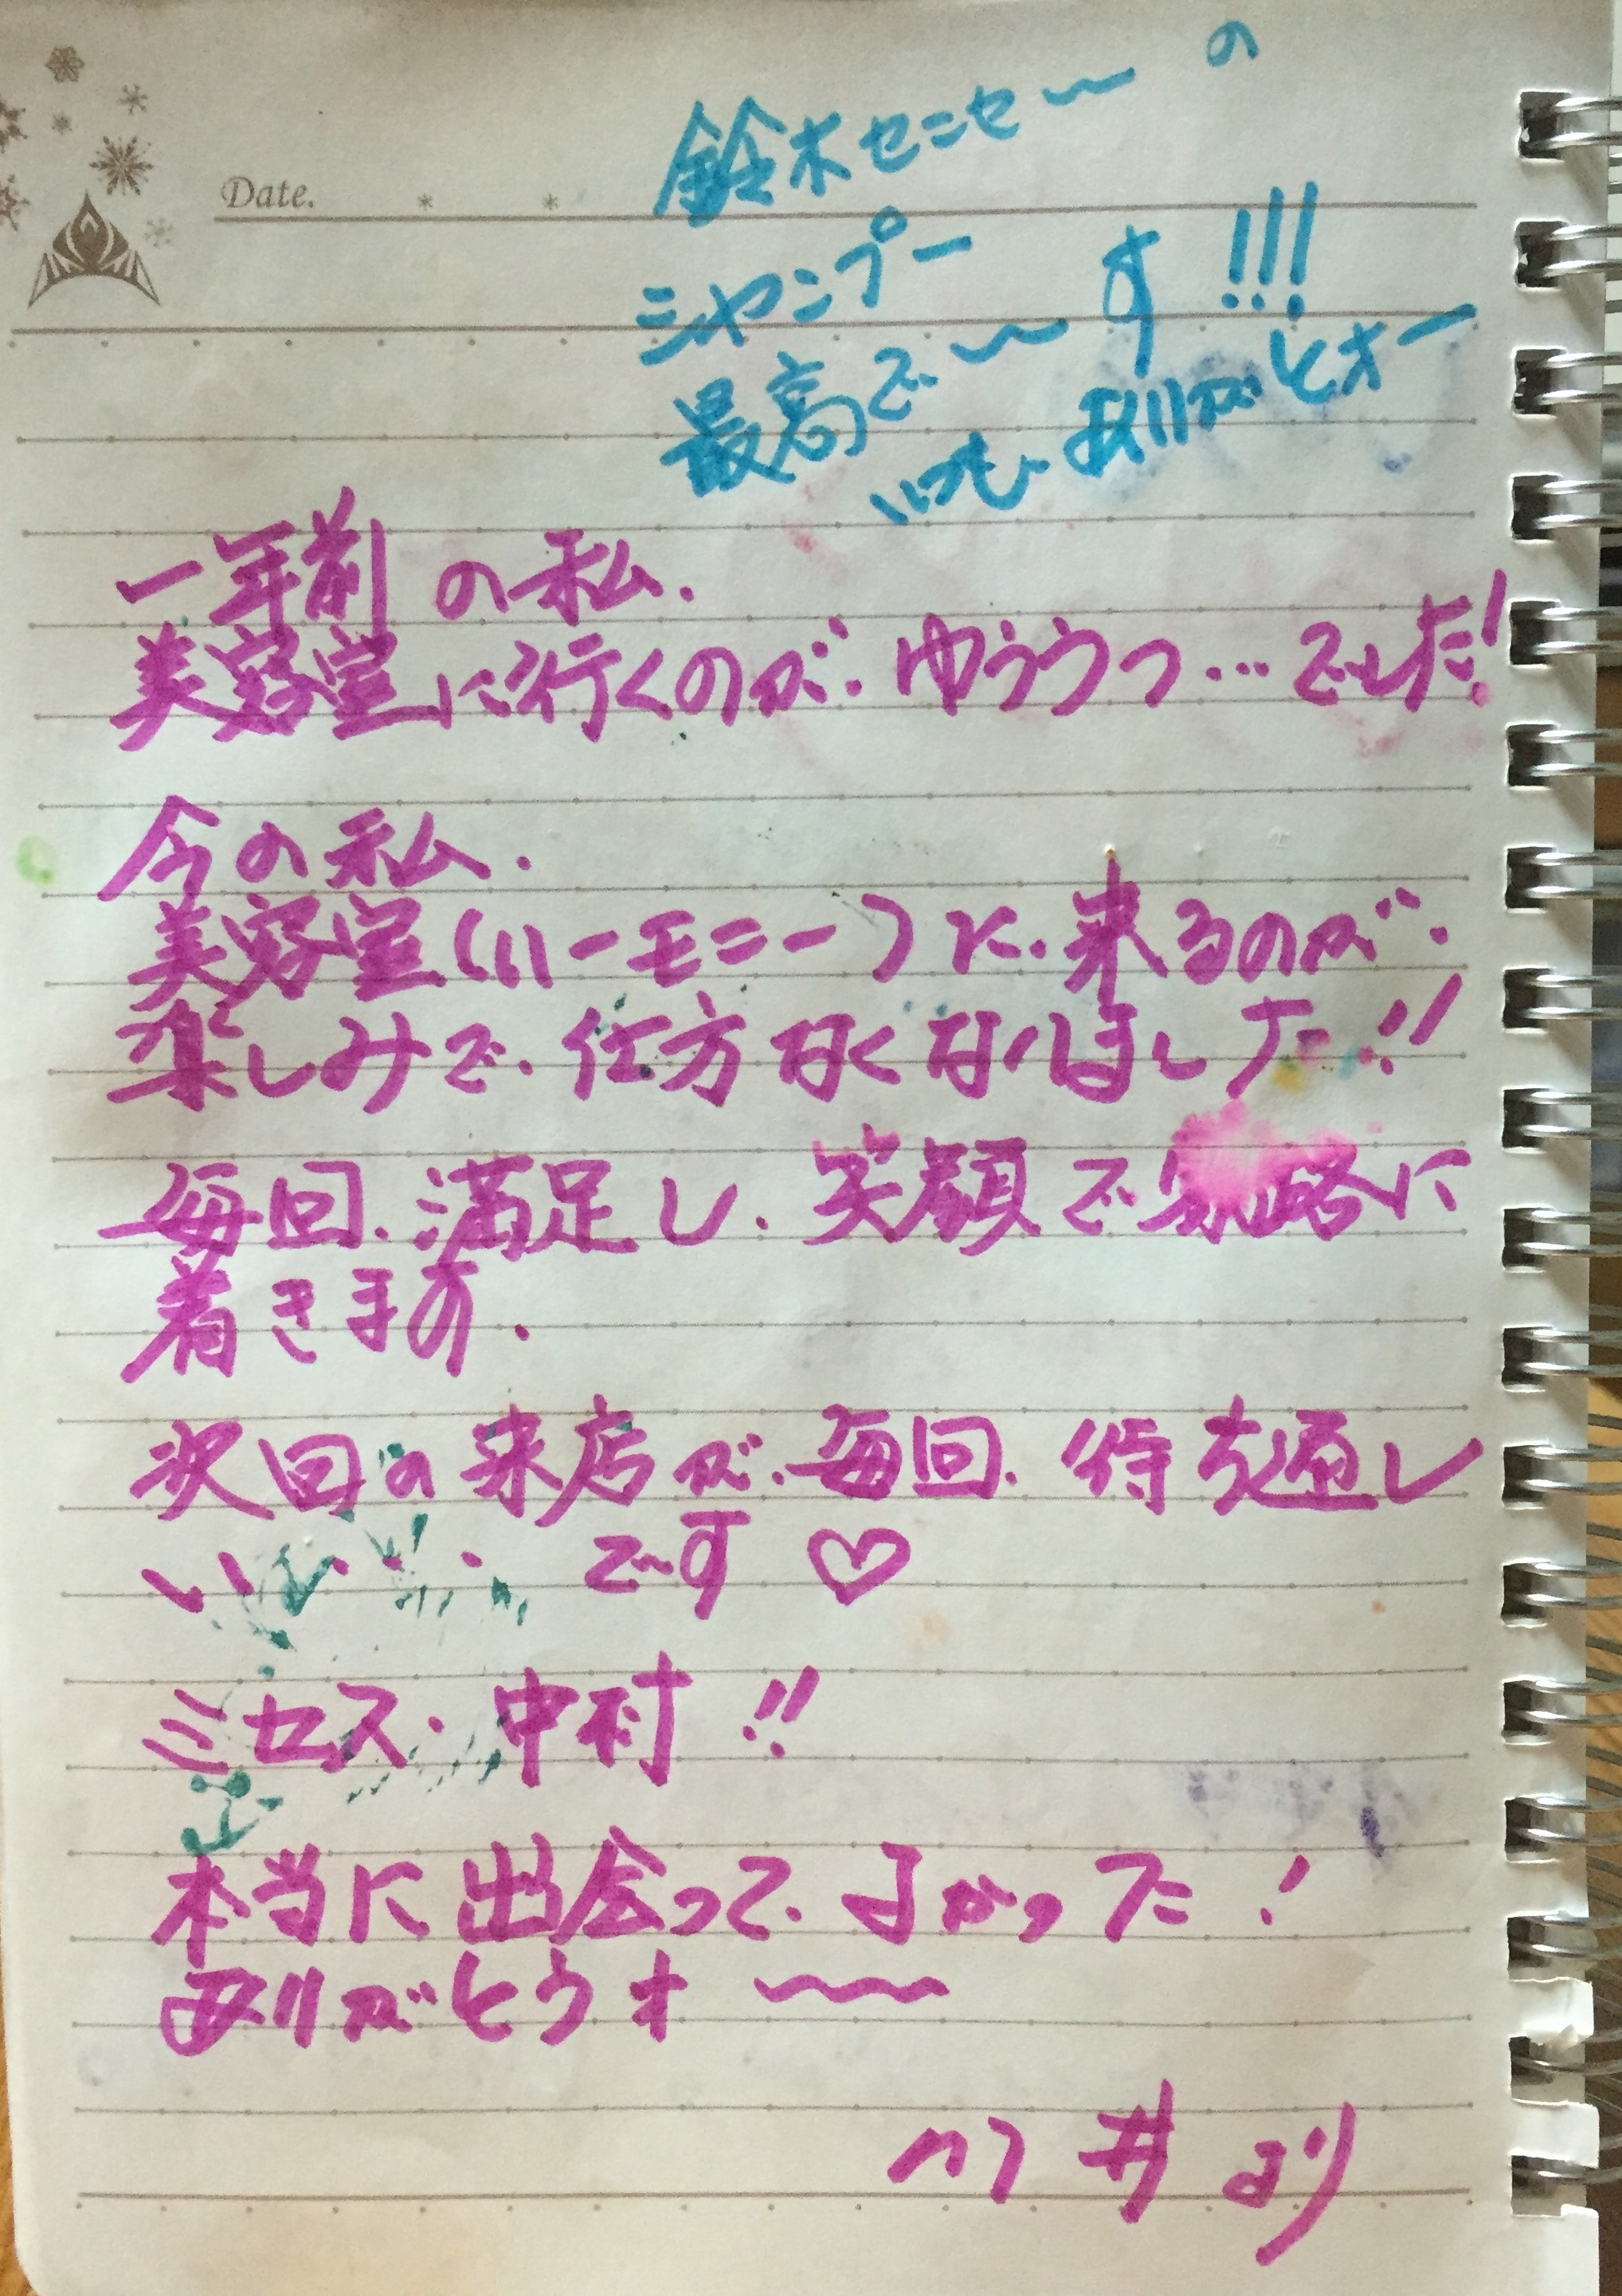 鈴木センセ〜の
シャンプー
最高で〜す!!!
いつもありがとオー
Date.
一年前の私.
美容室に行くのが.ゆううつ…でした!
今の私.
美容室(ハーモニー)に.来るのが.
楽しみで.仕方なくなりました!!
毎回.満足し.笑顔で家路に
着きます.
次回の来店が.毎回.待ち通し
い・・・・です♡
ミセス・中村!!
本当に出会って.よかった!
ありがとうオ〜〜
井より